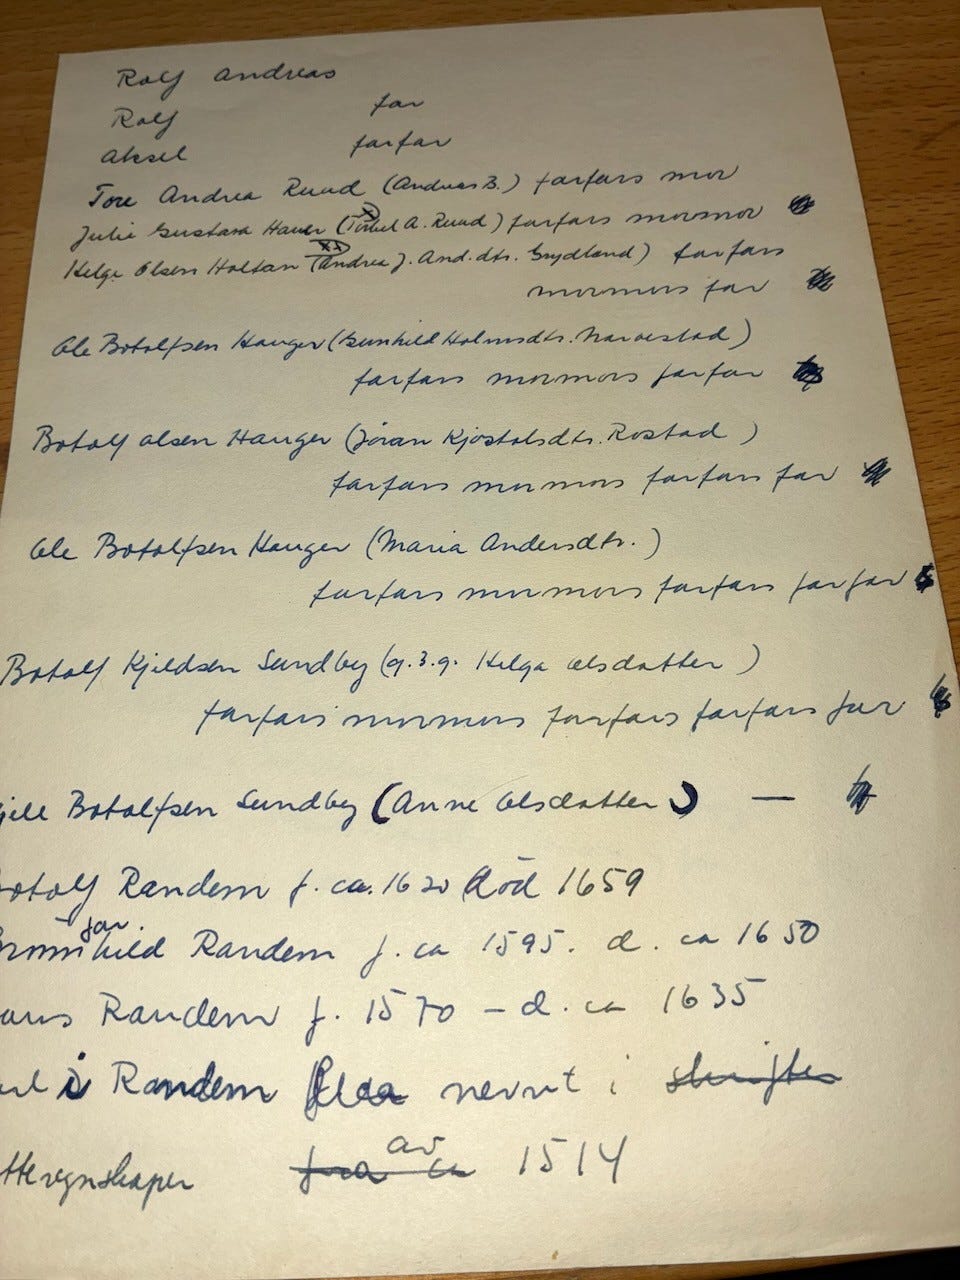 Rolf Andreas
Rolf far
Aksel farfar
Tore Andrea Ruud (Andreas B.) farfars mor
Julie Gustava Hauer ( A. Ruud) farfars mormor
x)
Helge Olsen Holtan (Andrea J. And.dtr. Grydland) farfars
xx)
mormors far
Ole Botolfsen Hauger (Gunhild Holmsdtr. Narvestad)
farfars mormors farfar
Botolf Olsen Hauger (Jöran Kjostolsdtr. Rostad )
farfars mormors farfars far
Ole Botolfsen Hauger (Maria Andersdtr. )
farfars mormors farfars farfar
Botolf Kjeldsen Sundby (g. 3. g. Helga Olsdatter )
farfars mormors farfars farfars far
jell Botolfsen Sundby (Anne Olsdatter ) —
otolf Randem f. ca. 1620 död 1659
far
hild Randem f. ca 1595. d. ca 1650
ans Randem f. 1570 – d. ca 1635
i Randem nevnt i skrifter
av
tteregnskaper fra ca 1514